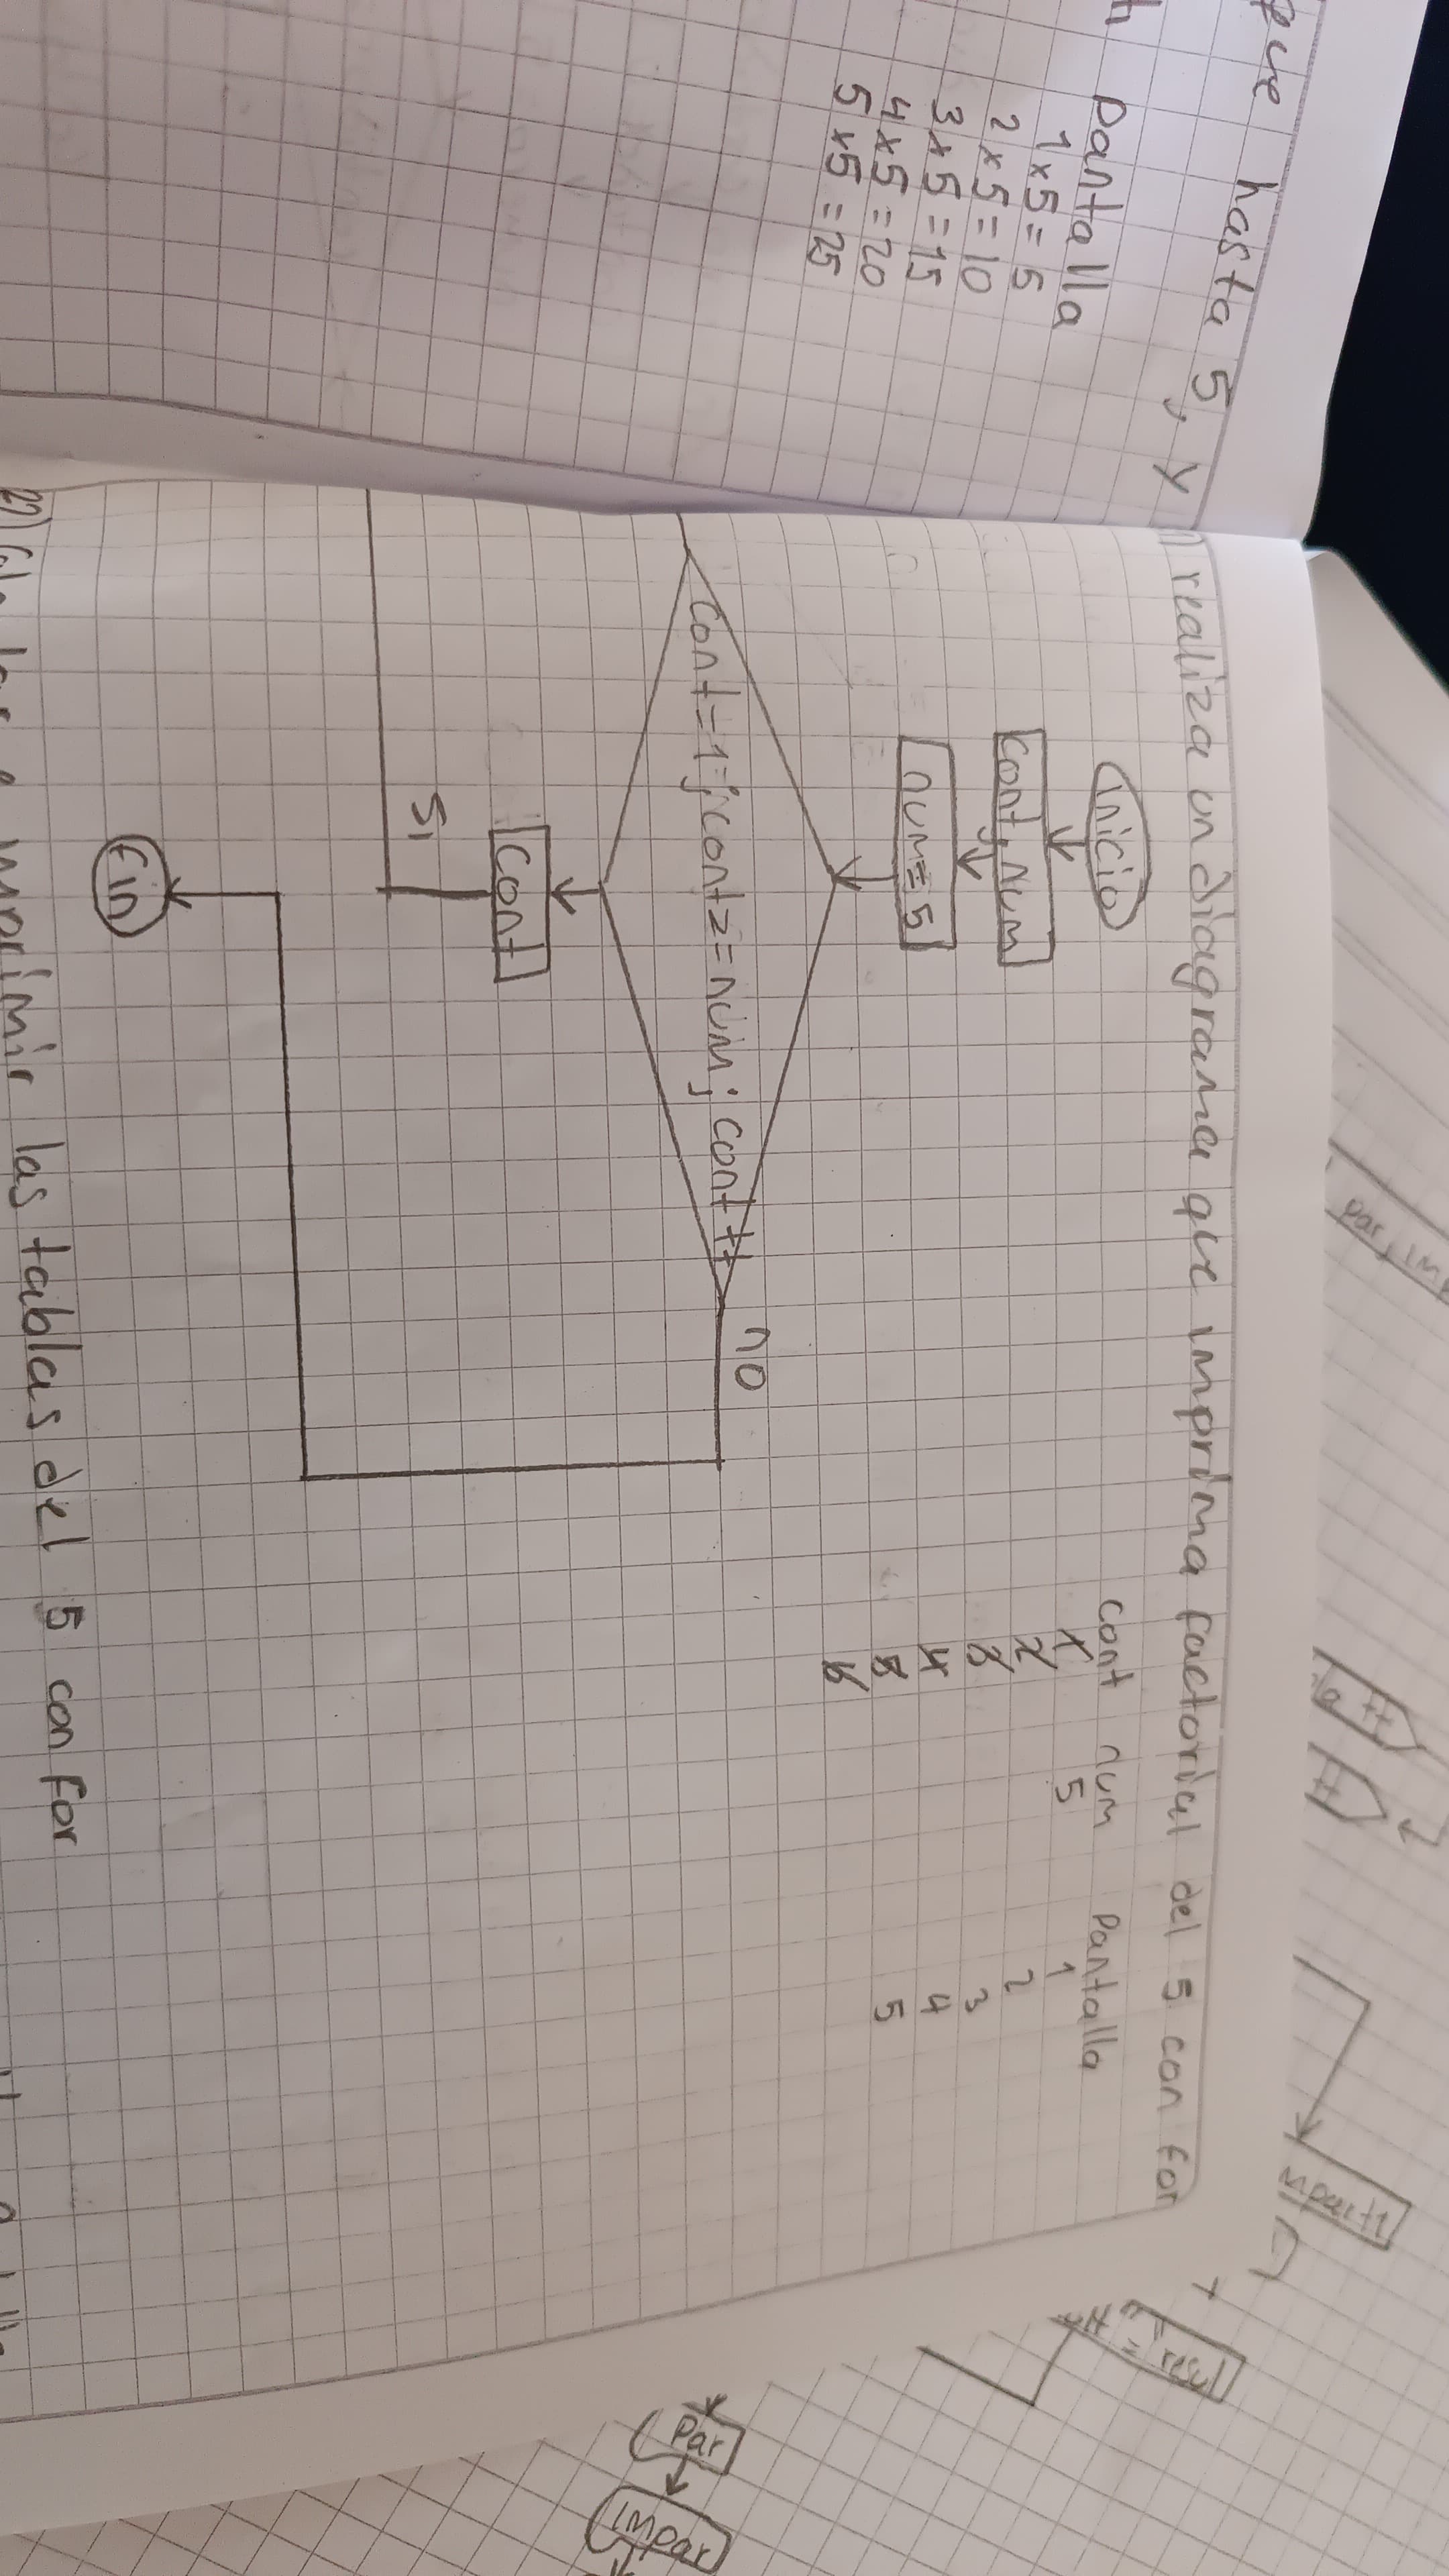 que hasta 5, y
pantalla
1x5=5
2x5=10
3x5=15
4x5=20
5x5=25
realiza un diagrama que imprima factorial del 5 con for
Inicio
Cont, num
num=5
Cont=1; cont<=num; cont++
no
Cont
Si
Fin
cont num Pantalla
1 5 1
2 2
3 3
4 4
5 5
6
2) imprimir las tablas del 5 con for
Par
Impar
= resul